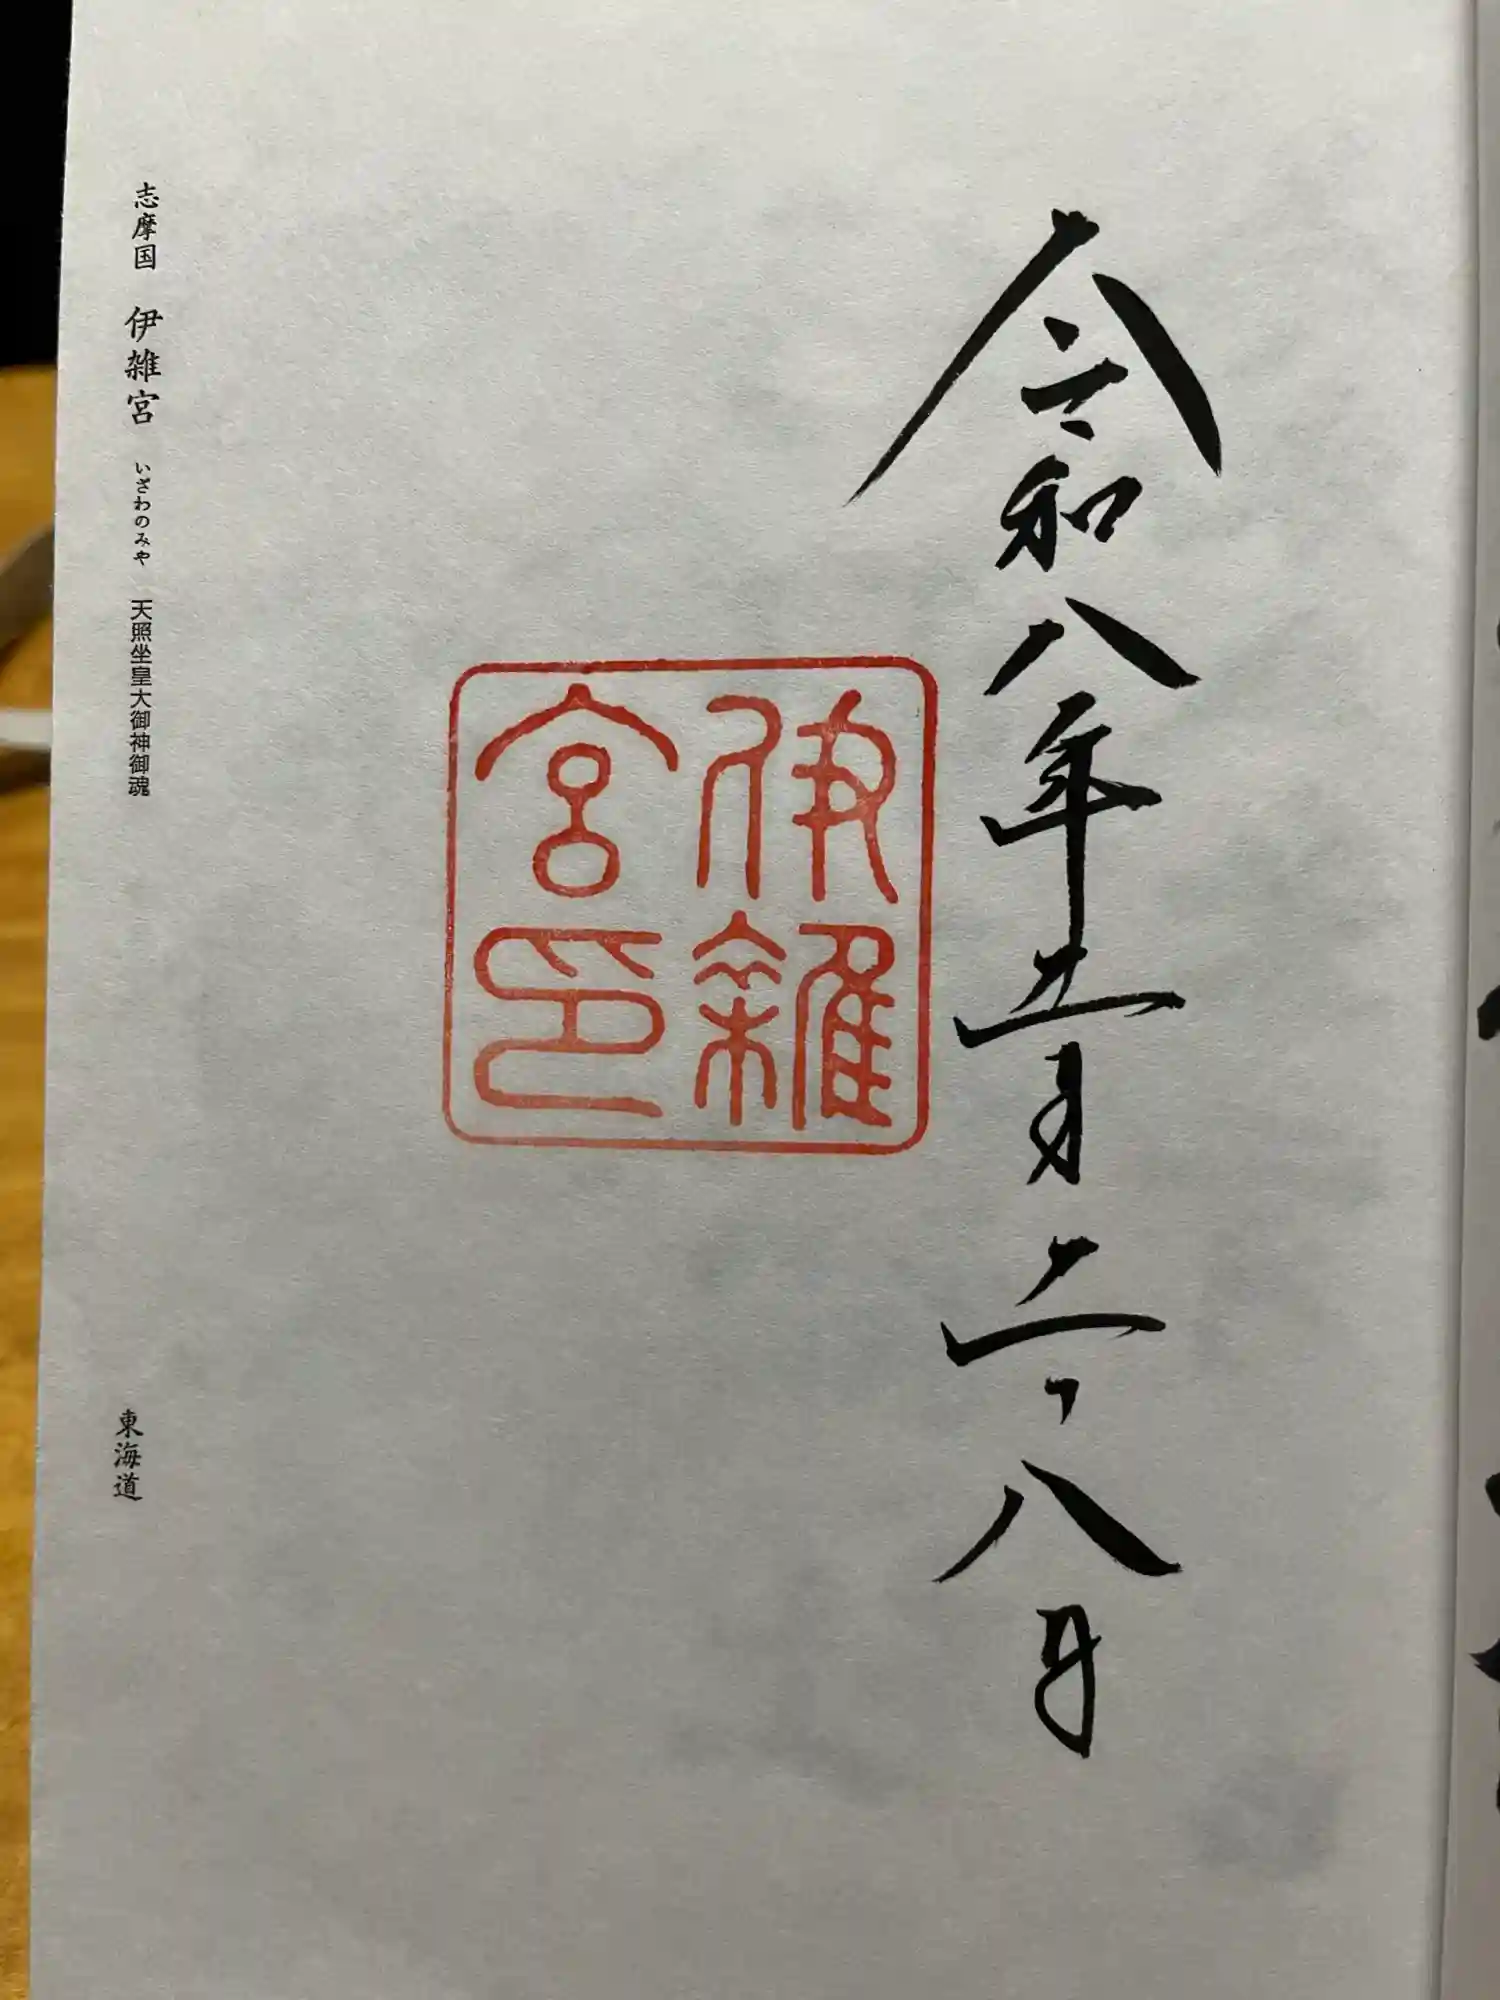 令和八年五月二十八日
伊雜
宮印
志摩国 伊雑宮 いざわのみや 天照坐皇大御神御魂
東海道